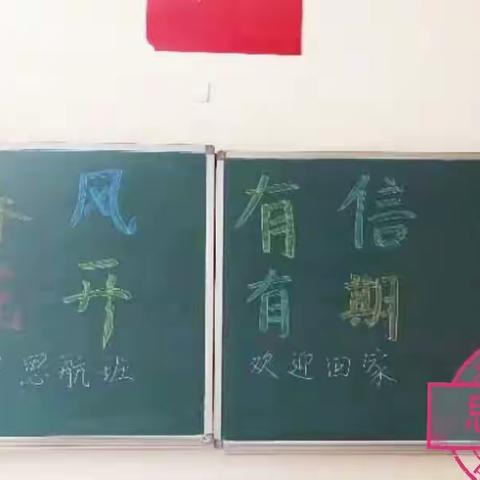 风 有信
开 有期
思航班 欢迎回家